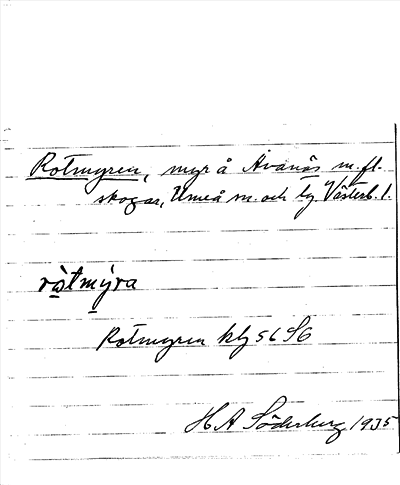 Rotmyren, myr å Avanäs m. fl.
skogar, Umeå m. och by Västerb. l.
ròtmýra
Rotmyren hbl 56 S6
H A Söderberg 1935